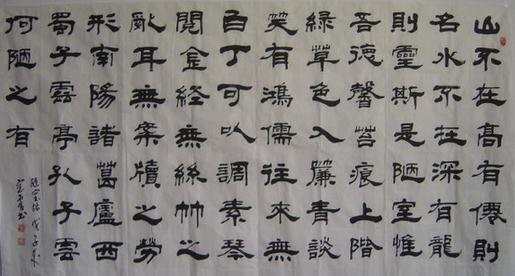 山不在高有僊則
名水不在深有龍
則靈斯是陋室惟
吾德馨苔痕上階
緑草色入簾青談
笑有鴻儒往來無
白丁可以調素琴
閲金經無絲竹之
亂耳無案牘之勞
形南陽諸葛廬西
蜀子雲亭孔子雲
何陋之有
陋室銘 戊子